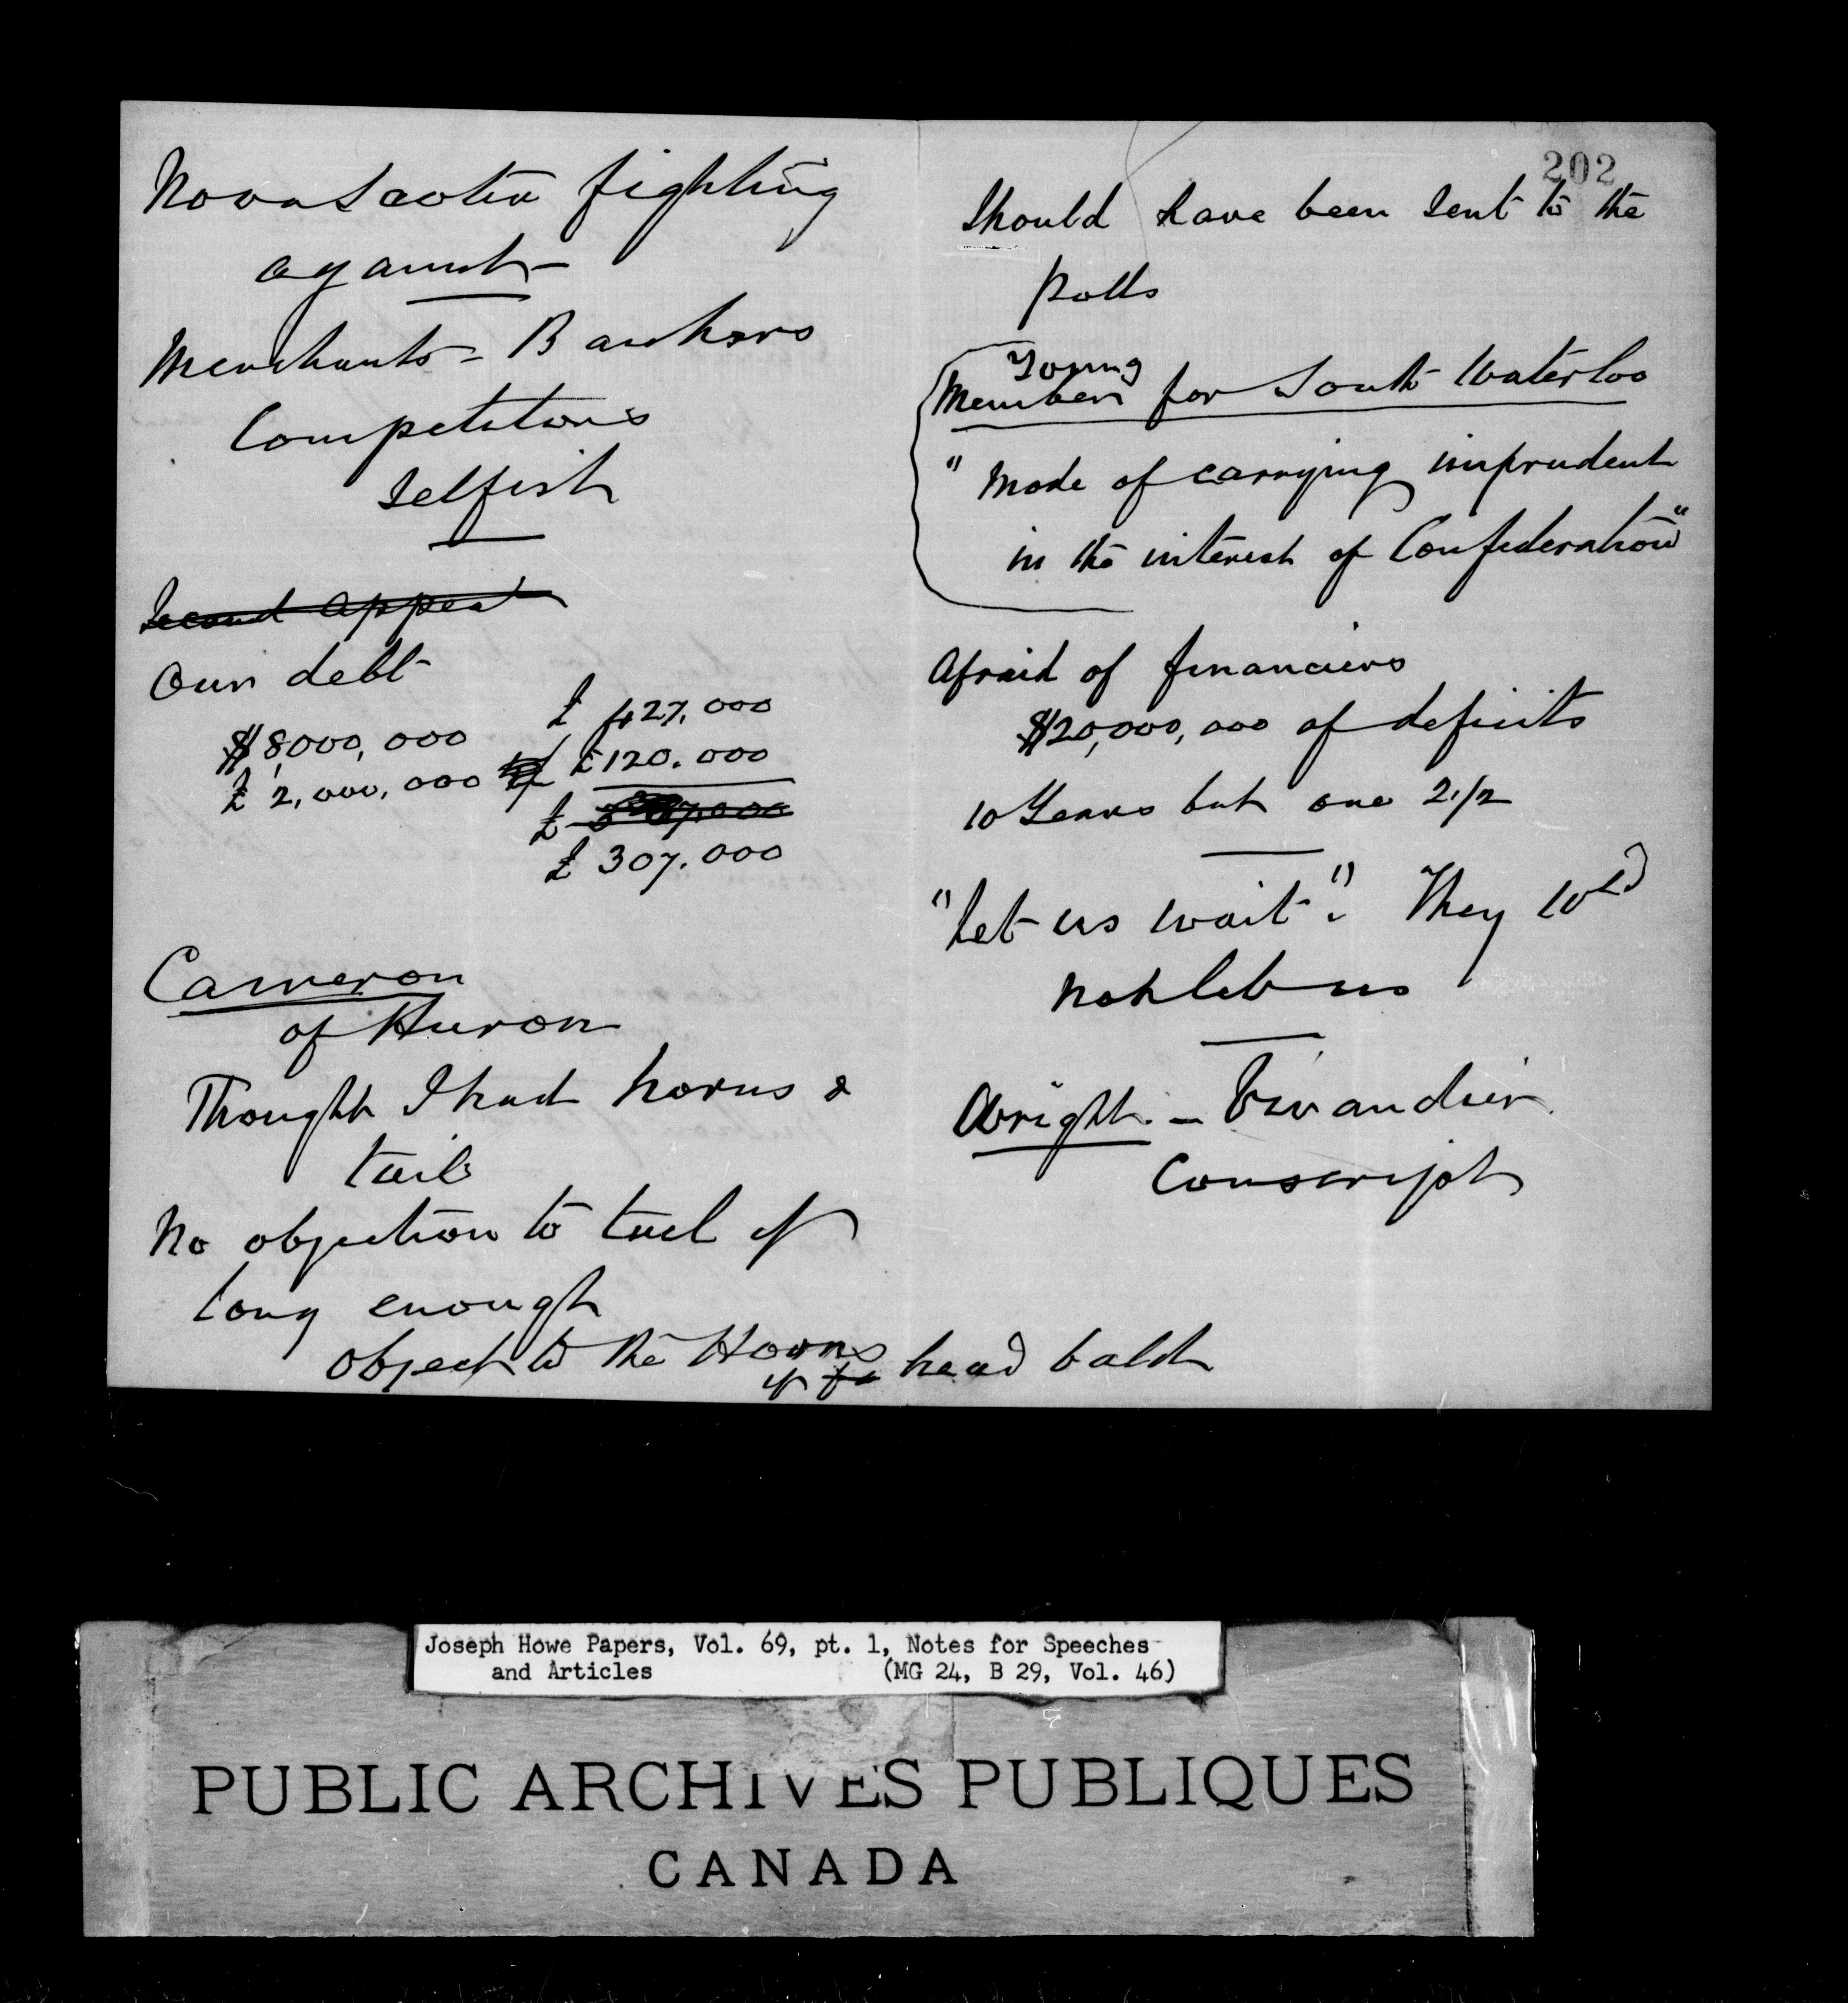 Nova Scotia fighting
against
Merchants - Bankers
Competitors
Selfish
Second Appeal
Our debt
$8,000,000
£ 2,000,000
£ 427,000
£ 120.000
£
£ 307.000
Cameron
of Huron
Thought I had horns &
tail
No objection to tail if
long enough
object to the Horns
if head bald
202
Should have been sent to the
Polls
Young
Member for South Waterloo
"Mode of carrying imprudent
in the interest of Confederation"
Afraid of financiers
$20,000,000 of deficits
10 Years but one 2 1/2
"Let us wait". They wld
not let us
Wright - Vivandier
Conscript
Joseph Howe Papers, Vol. 69, pt. 1, Notes for Speeches
and Articles (MG 24, B 29, Vol. 46)
PUBLIC ARCHIVES PUBLIQUES
CANADA